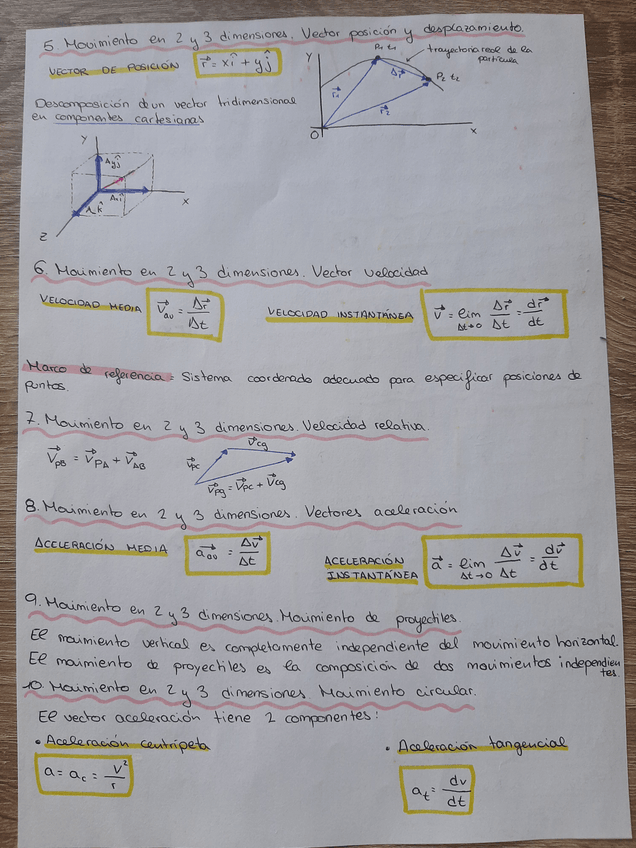 5. Movimiento en 2 y 3 dimensiones. Vector posición y desplazamiento.
VECTOR DE POSICIÓN r⃗ = xî + yĵ
Y P₁ t₁ trayectoria real de la
partícula
Δr⃗ P₂ t₂
r⃗₁ r⃗₂
O X
Descomposición de un vector tridimensional
en componentes cartesianas
Y
Ayĵ
Axî X
k̂
Z
6. Movimiento en 2 y 3 dimensiones. Vector velocidad
VELOCIDAD MEDIA v⃗av = Δr⃗/Δt VELOCIDAD INSTANTÁNEA v⃗ = lim Δt→0 Δr⃗/Δt = dr⃗/dt
Marco de referencia = Sistema coordenado adecuado para especificar posiciones de
puntos.
7. Movimiento en 2 y 3 dimensiones. Velocidad relativa.
V⃗PB = V⃗PA + V⃗AB v⃗pc v⃗cg
v⃗pg = v⃗pc + v⃗cg
8. Movimiento en 2 y 3 dimensiones. Vectores aceleración
ACELERACIÓN MEDIA a⃗av = Δv⃗/Δt ACELERACIÓN
INSTANTÁNEA a⃗ = lim Δt→0 Δv⃗/Δt = dv⃗/dt
9. Movimiento en 2 y 3 dimensiones. Movimiento de proyectiles.
El movimiento vertical es completamente independiente del movimiento horizontal.
El movimiento de proyectiles es la composición de dos movimientos independien
tes.
10. Movimiento en 2 y 3 dimensiones. Movimiento circular.
El vector aceleración tiene 2 componentes:
• Aceleración centrípeta • Aceleración tangencial
a = ac = v²/r at = dv/dt